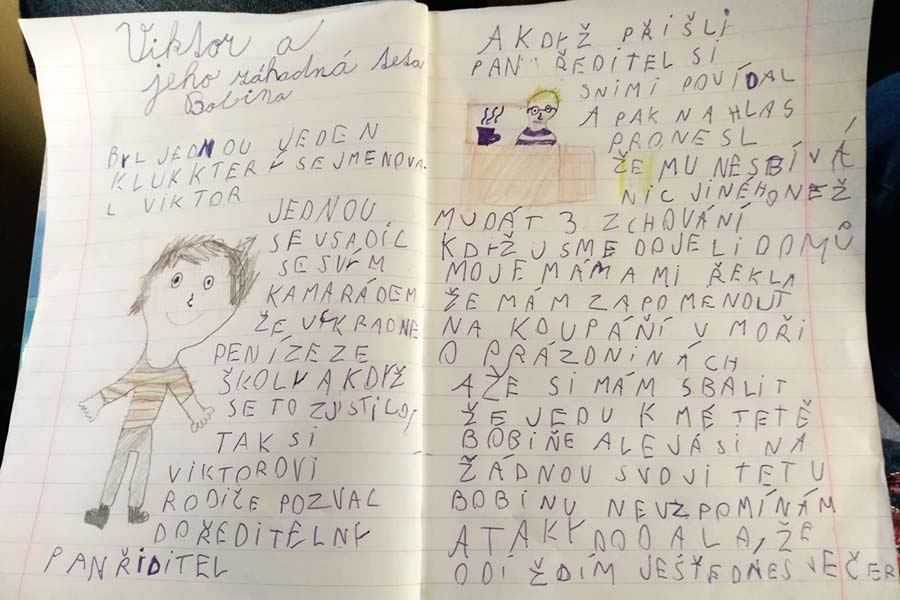 Viktor a
jeho záhadná teta
Bobina
BYL JEDNOU JEDEN
KLUK KTERÝ SE JMENOVA-
L VIKTOR
JEDNOU
SE VSADIL
SE SVÝM
KAMARÁDEM
ŽE VYKRADNE
PENÍZE ZE
ŠKOLY A KDYŽ
SE TO ZJISTILO,
TAK SI
VIKTOROVI
RODIČE POZVAL
DO ŘEDITELNY
PAN ŘIDITEL
A KDYŽ PŘIŠLI
PAN ŘEDITEL SI
SNÍMI POVÍDAL
A PAK NAHLAS
PRONESL
ŽE MU NESBÍVÁ
NIC JINÉHO NEŽ
MU DÁT 3 ZCHOVÁNÍ
KDYŽ JSME DOJELI DOMŮ
MOJE MÁMA MI ŘEKLA
ŽE MÁM ZAPOMENOUT
NA KOUPÁŇÍ V MOŘI
O PRÁZDNINÁCH
A ŽE SI MÁM SBALIT
ŽE JEDU K MÉ TETĚ
BOBIŇE ALE JÁ SI NA
ŽÁDNOU SVOJI TETU
BOBINU NEVZPOMÍNÁM
A TAKY DODALA, ŽE
ODÍŽDÍM JEŠTĚ DNES VEČER